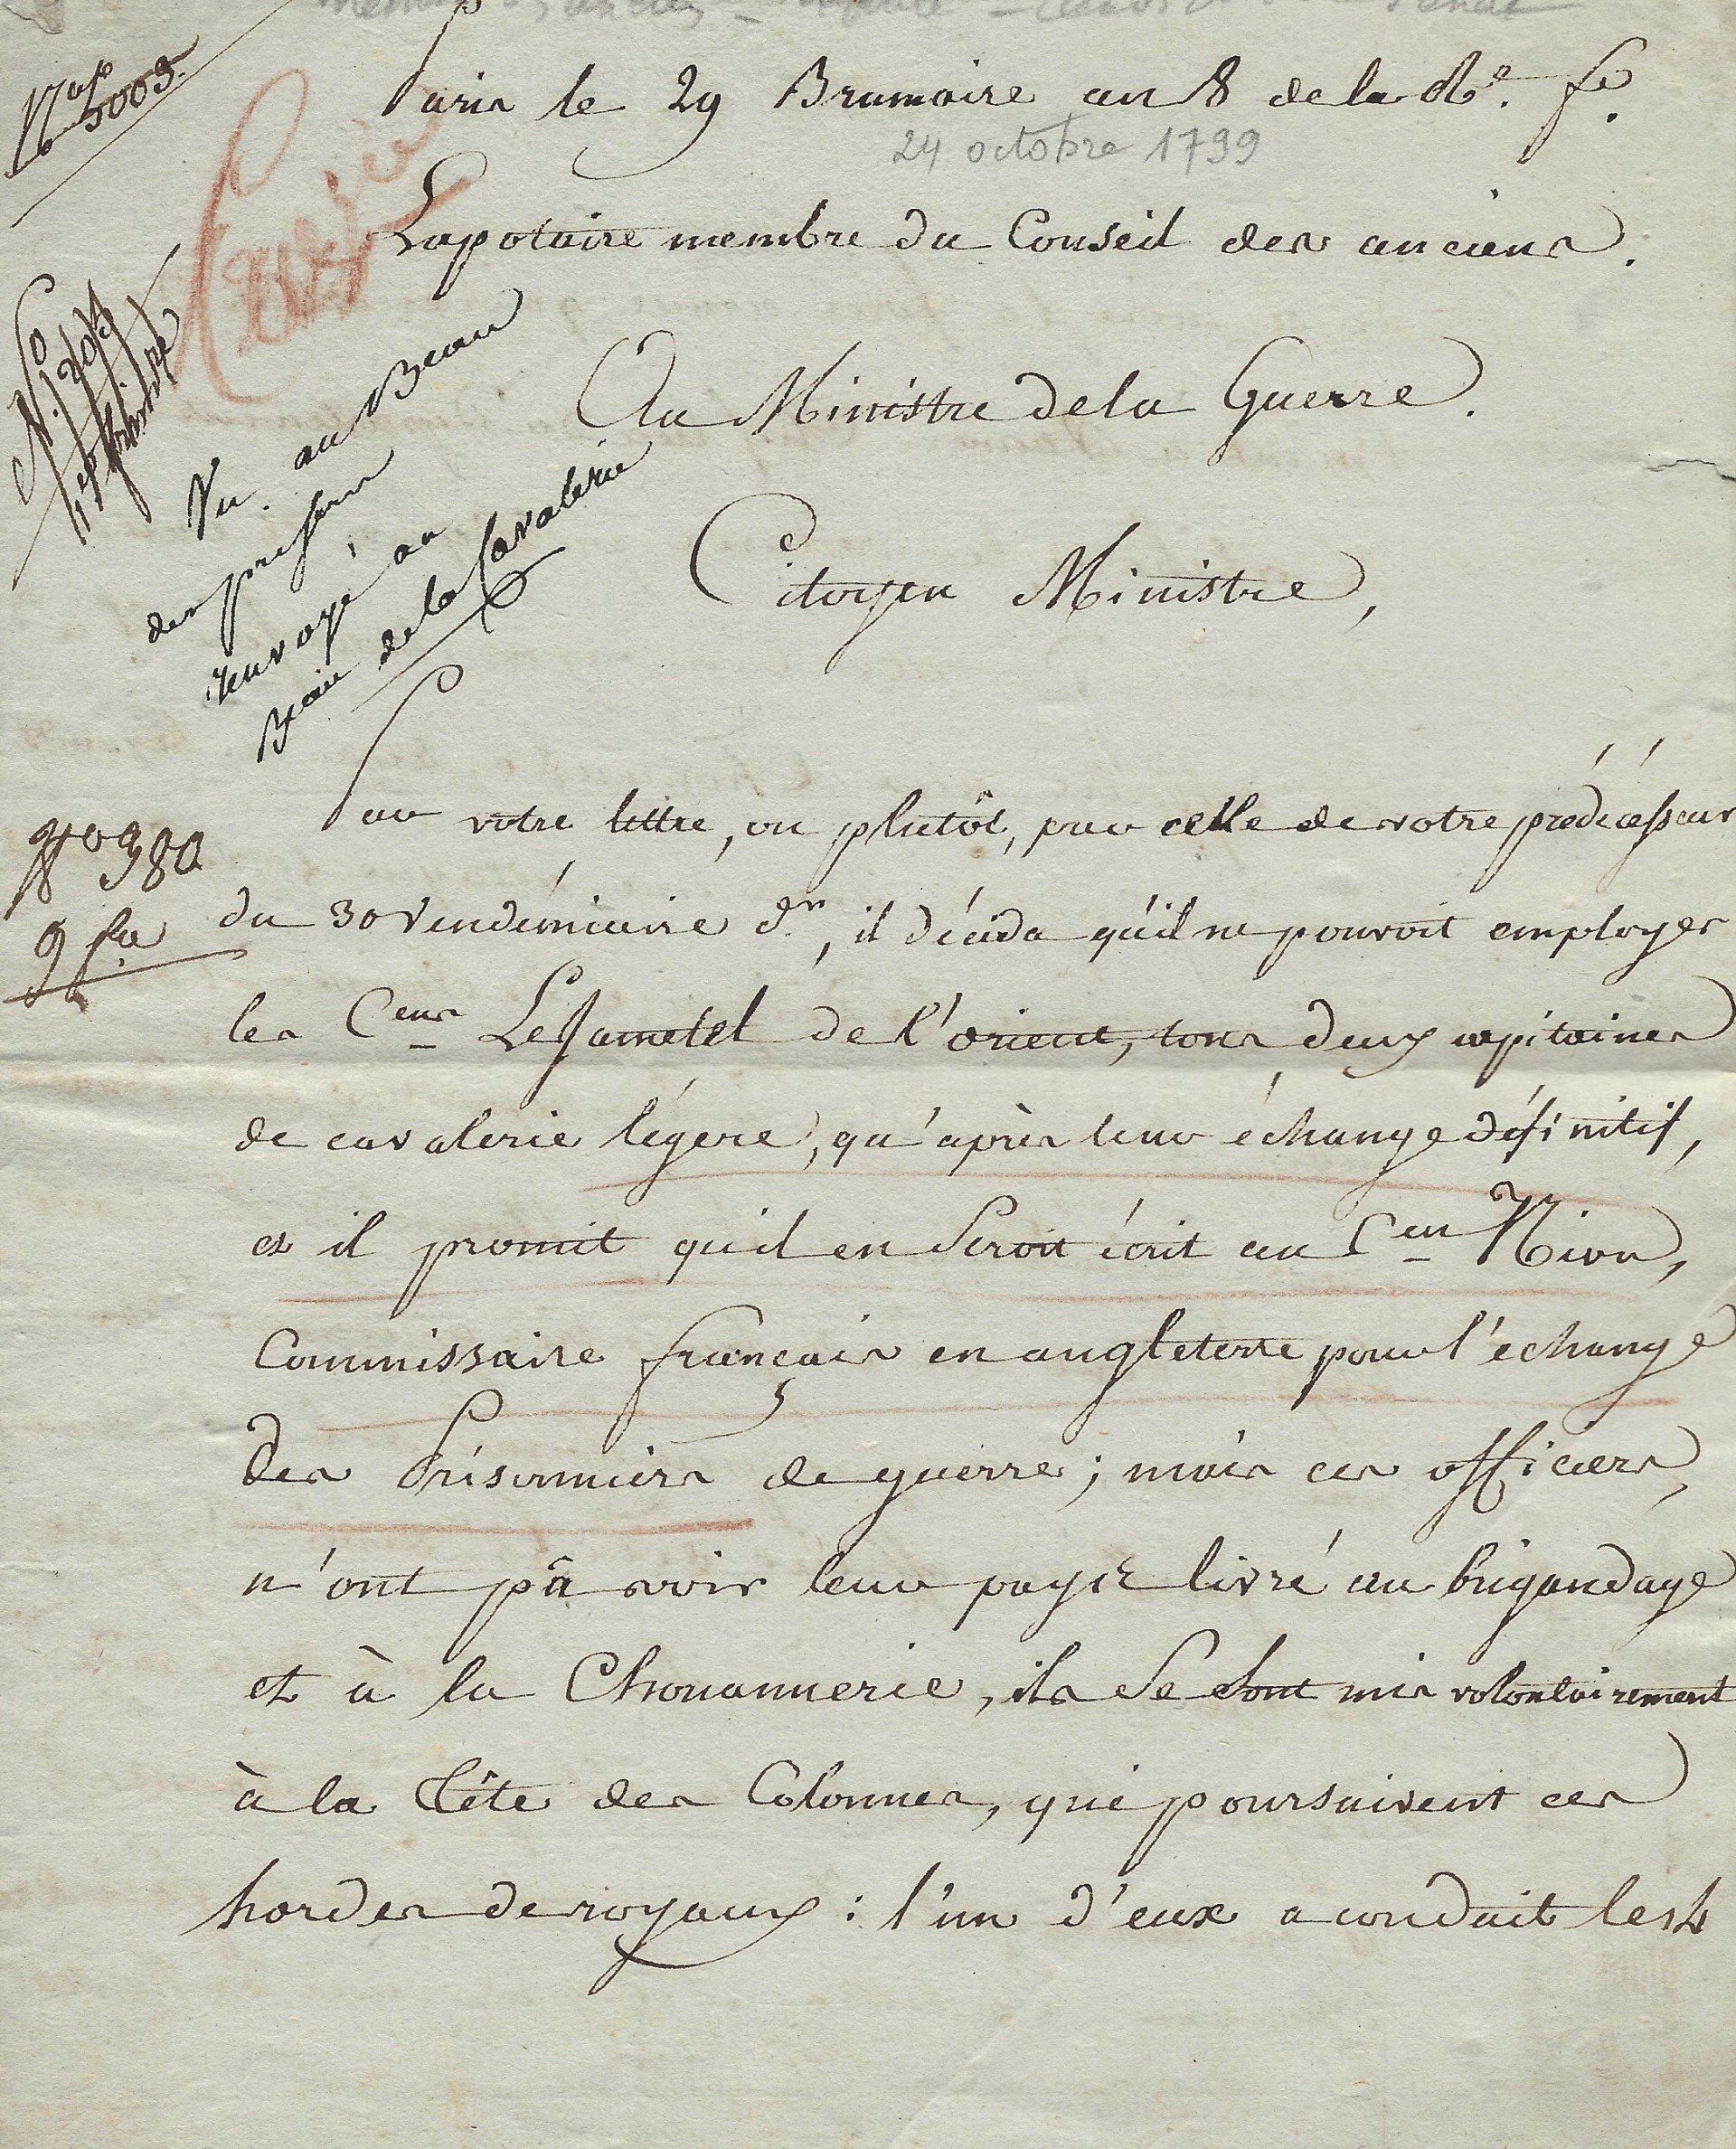 Paris le 29 Brumaire an 8 de la Re. fe.
24 octobre 1799
Lapotaire membre du Conseil des anciens.
Au Ministre de la Guerre.
Citoyen Ministre,
Vu au Beau
des prisons
renvoyé au
Beau de la Cavalerie
Par votre lettre, ou plutôt, par celle de votre prédécésseur
du 30 Vendémiaire dr., il décida qu'il ne pouvoit employer
les Cens LeJametel de l'orient, tous deux capitaines
de cavalerie légere, qu'après leur échange définitif,
et il promit qu'il en seroit écrit au Cen Niou,
Commissaire français en angleterre pour l'échange
des Prisonniers de guerre; mais ces officiers,
n'ont pû voir leur payis livré au brigandage
et à la Chouannerie, ils se sont mis volontairement
à la Tête des Colonnes, qui poursuivent ces
hordes de royaux: l'un d'eux a conduit les 4
N° 380